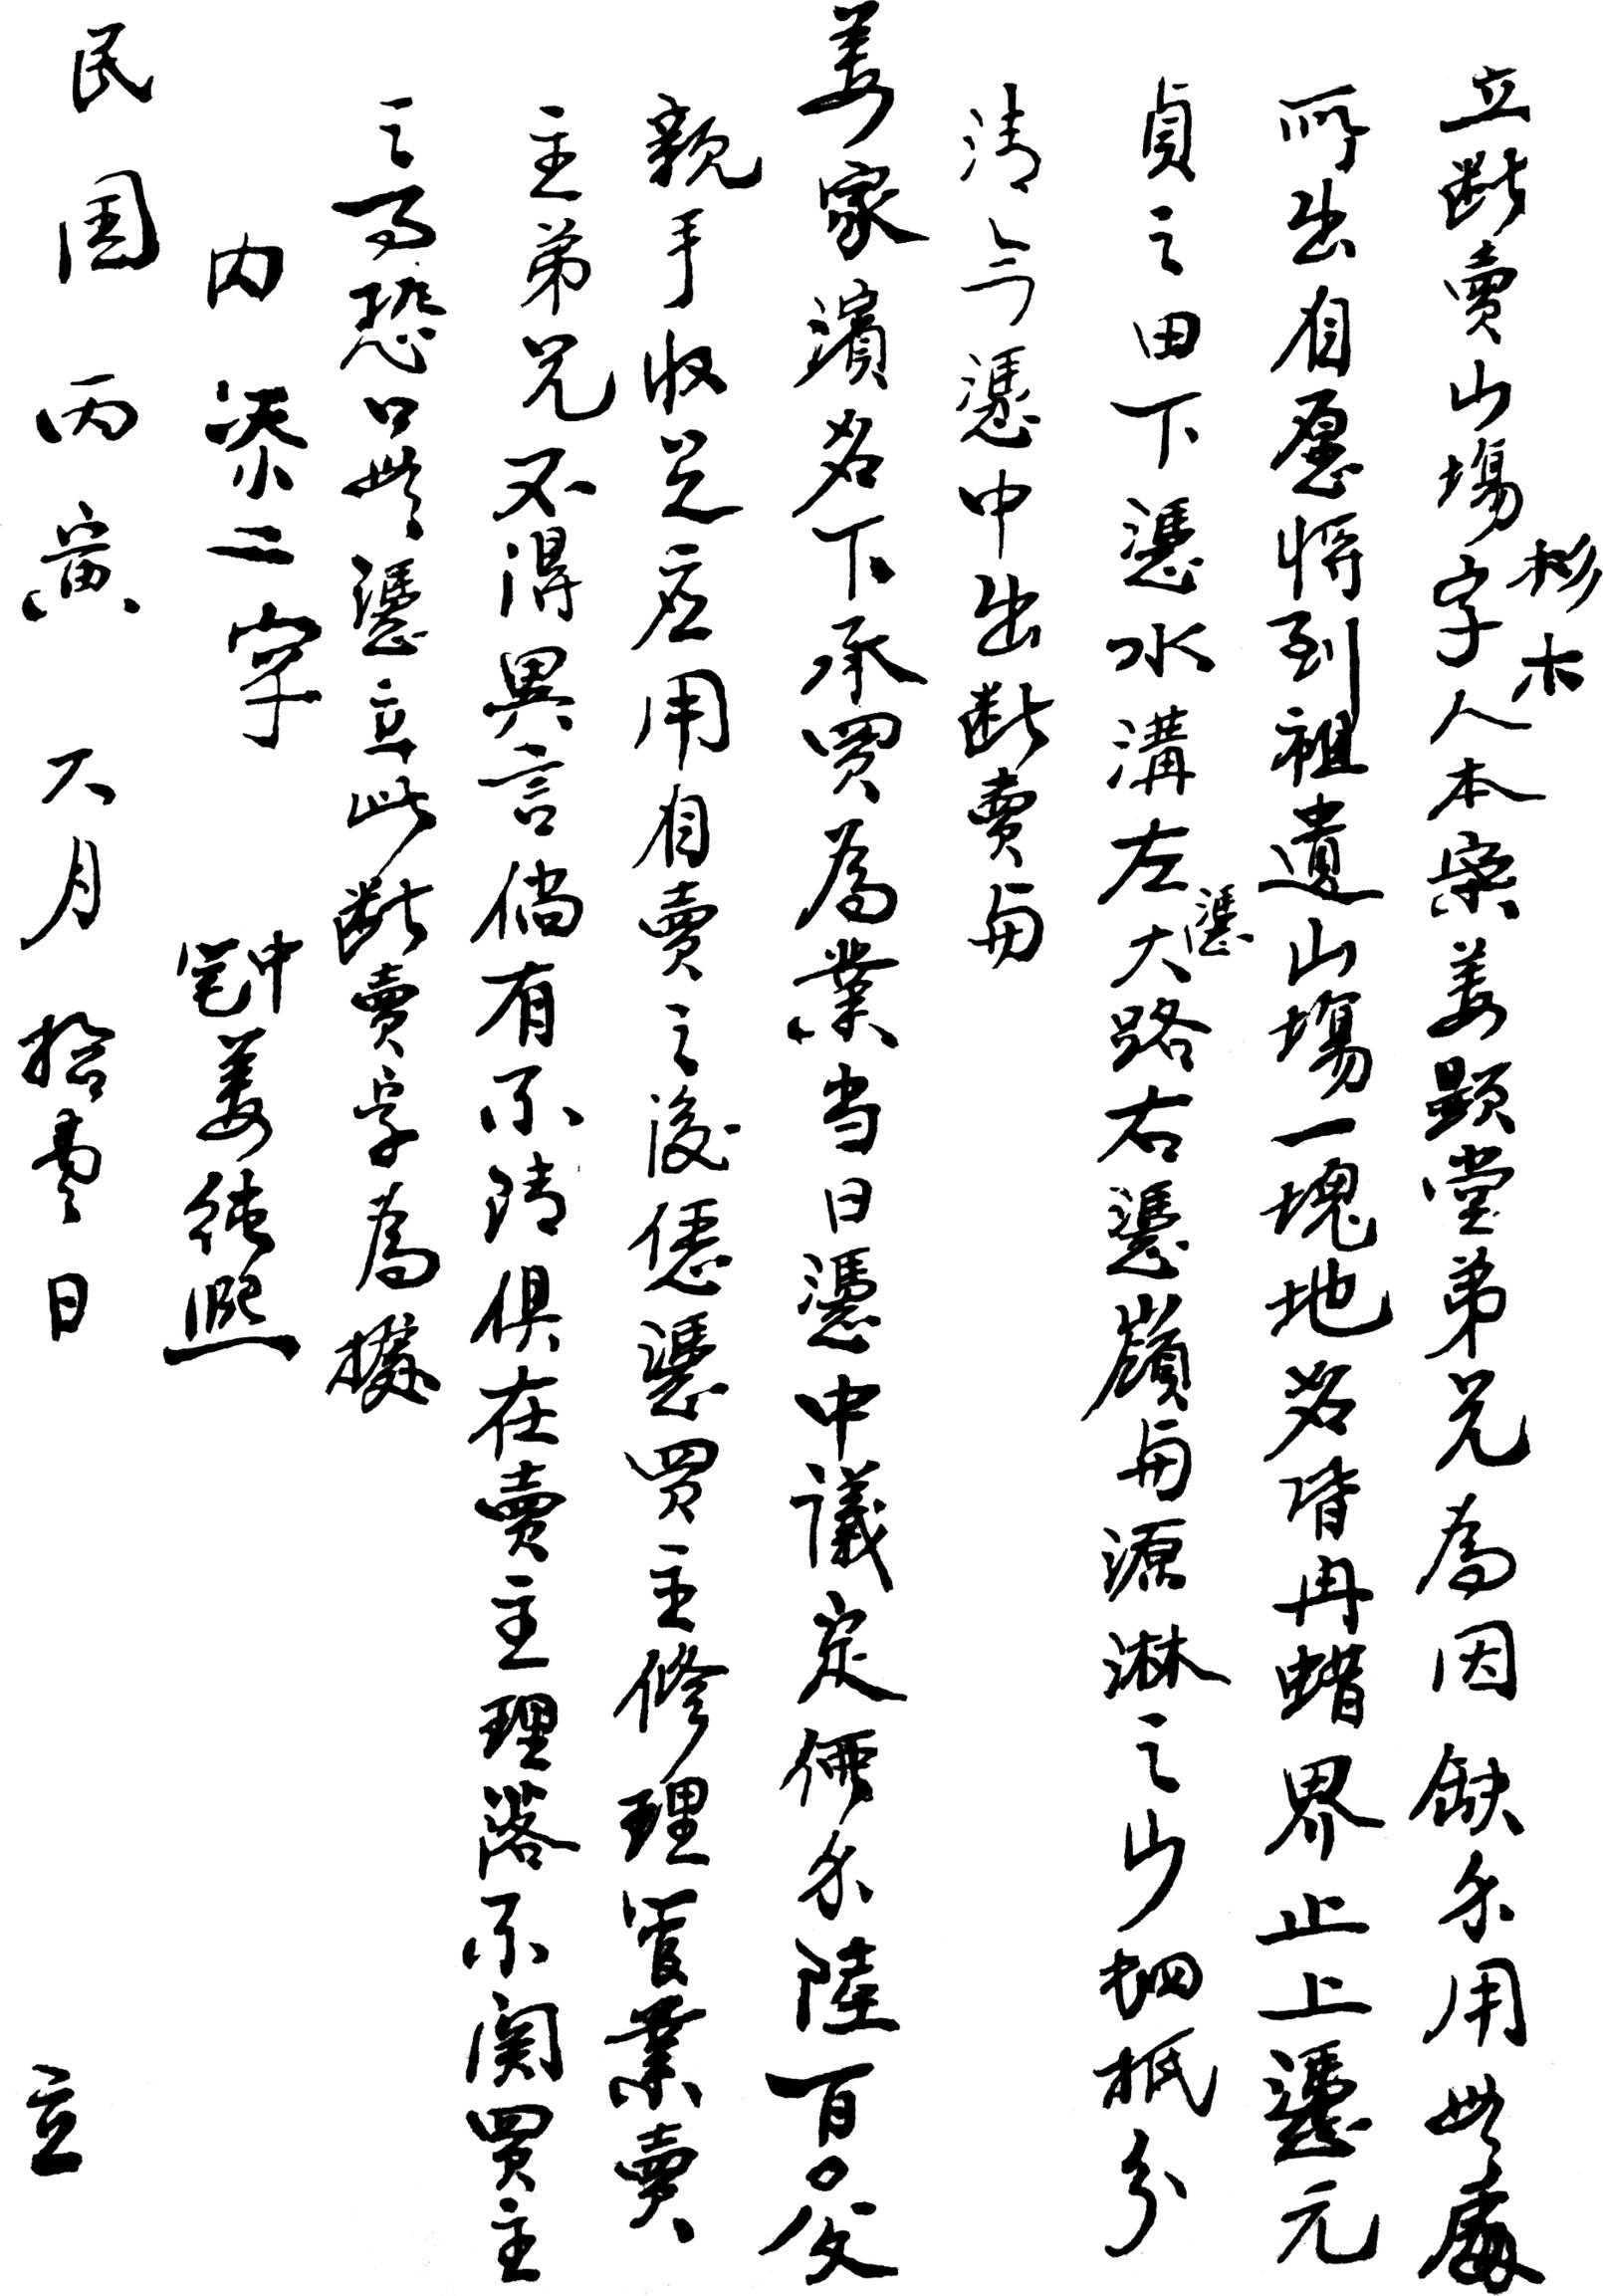 立斷賣山塲杉木字人本寨姜顕堂弟兄為因缺少用無處
所出自愿將到祖遺山塲一塊地名皆冉蜡界止上憑元
貞之田下憑水溝左憑大路右憑嶺与源淋之山四抵分
清今憑中出斷賣与
姜家濱名下承買為業当日憑中議定價錢陸百〇八文
親手收足应用自賣之後任憑買主修理管業賣
主弟兄不得異言倘有不清俱在賣主理落不関買主
之事恐口無憑立此斷賣字為據
内添二字
中
筆姜純熙
民国丙寅六月拾壹日立